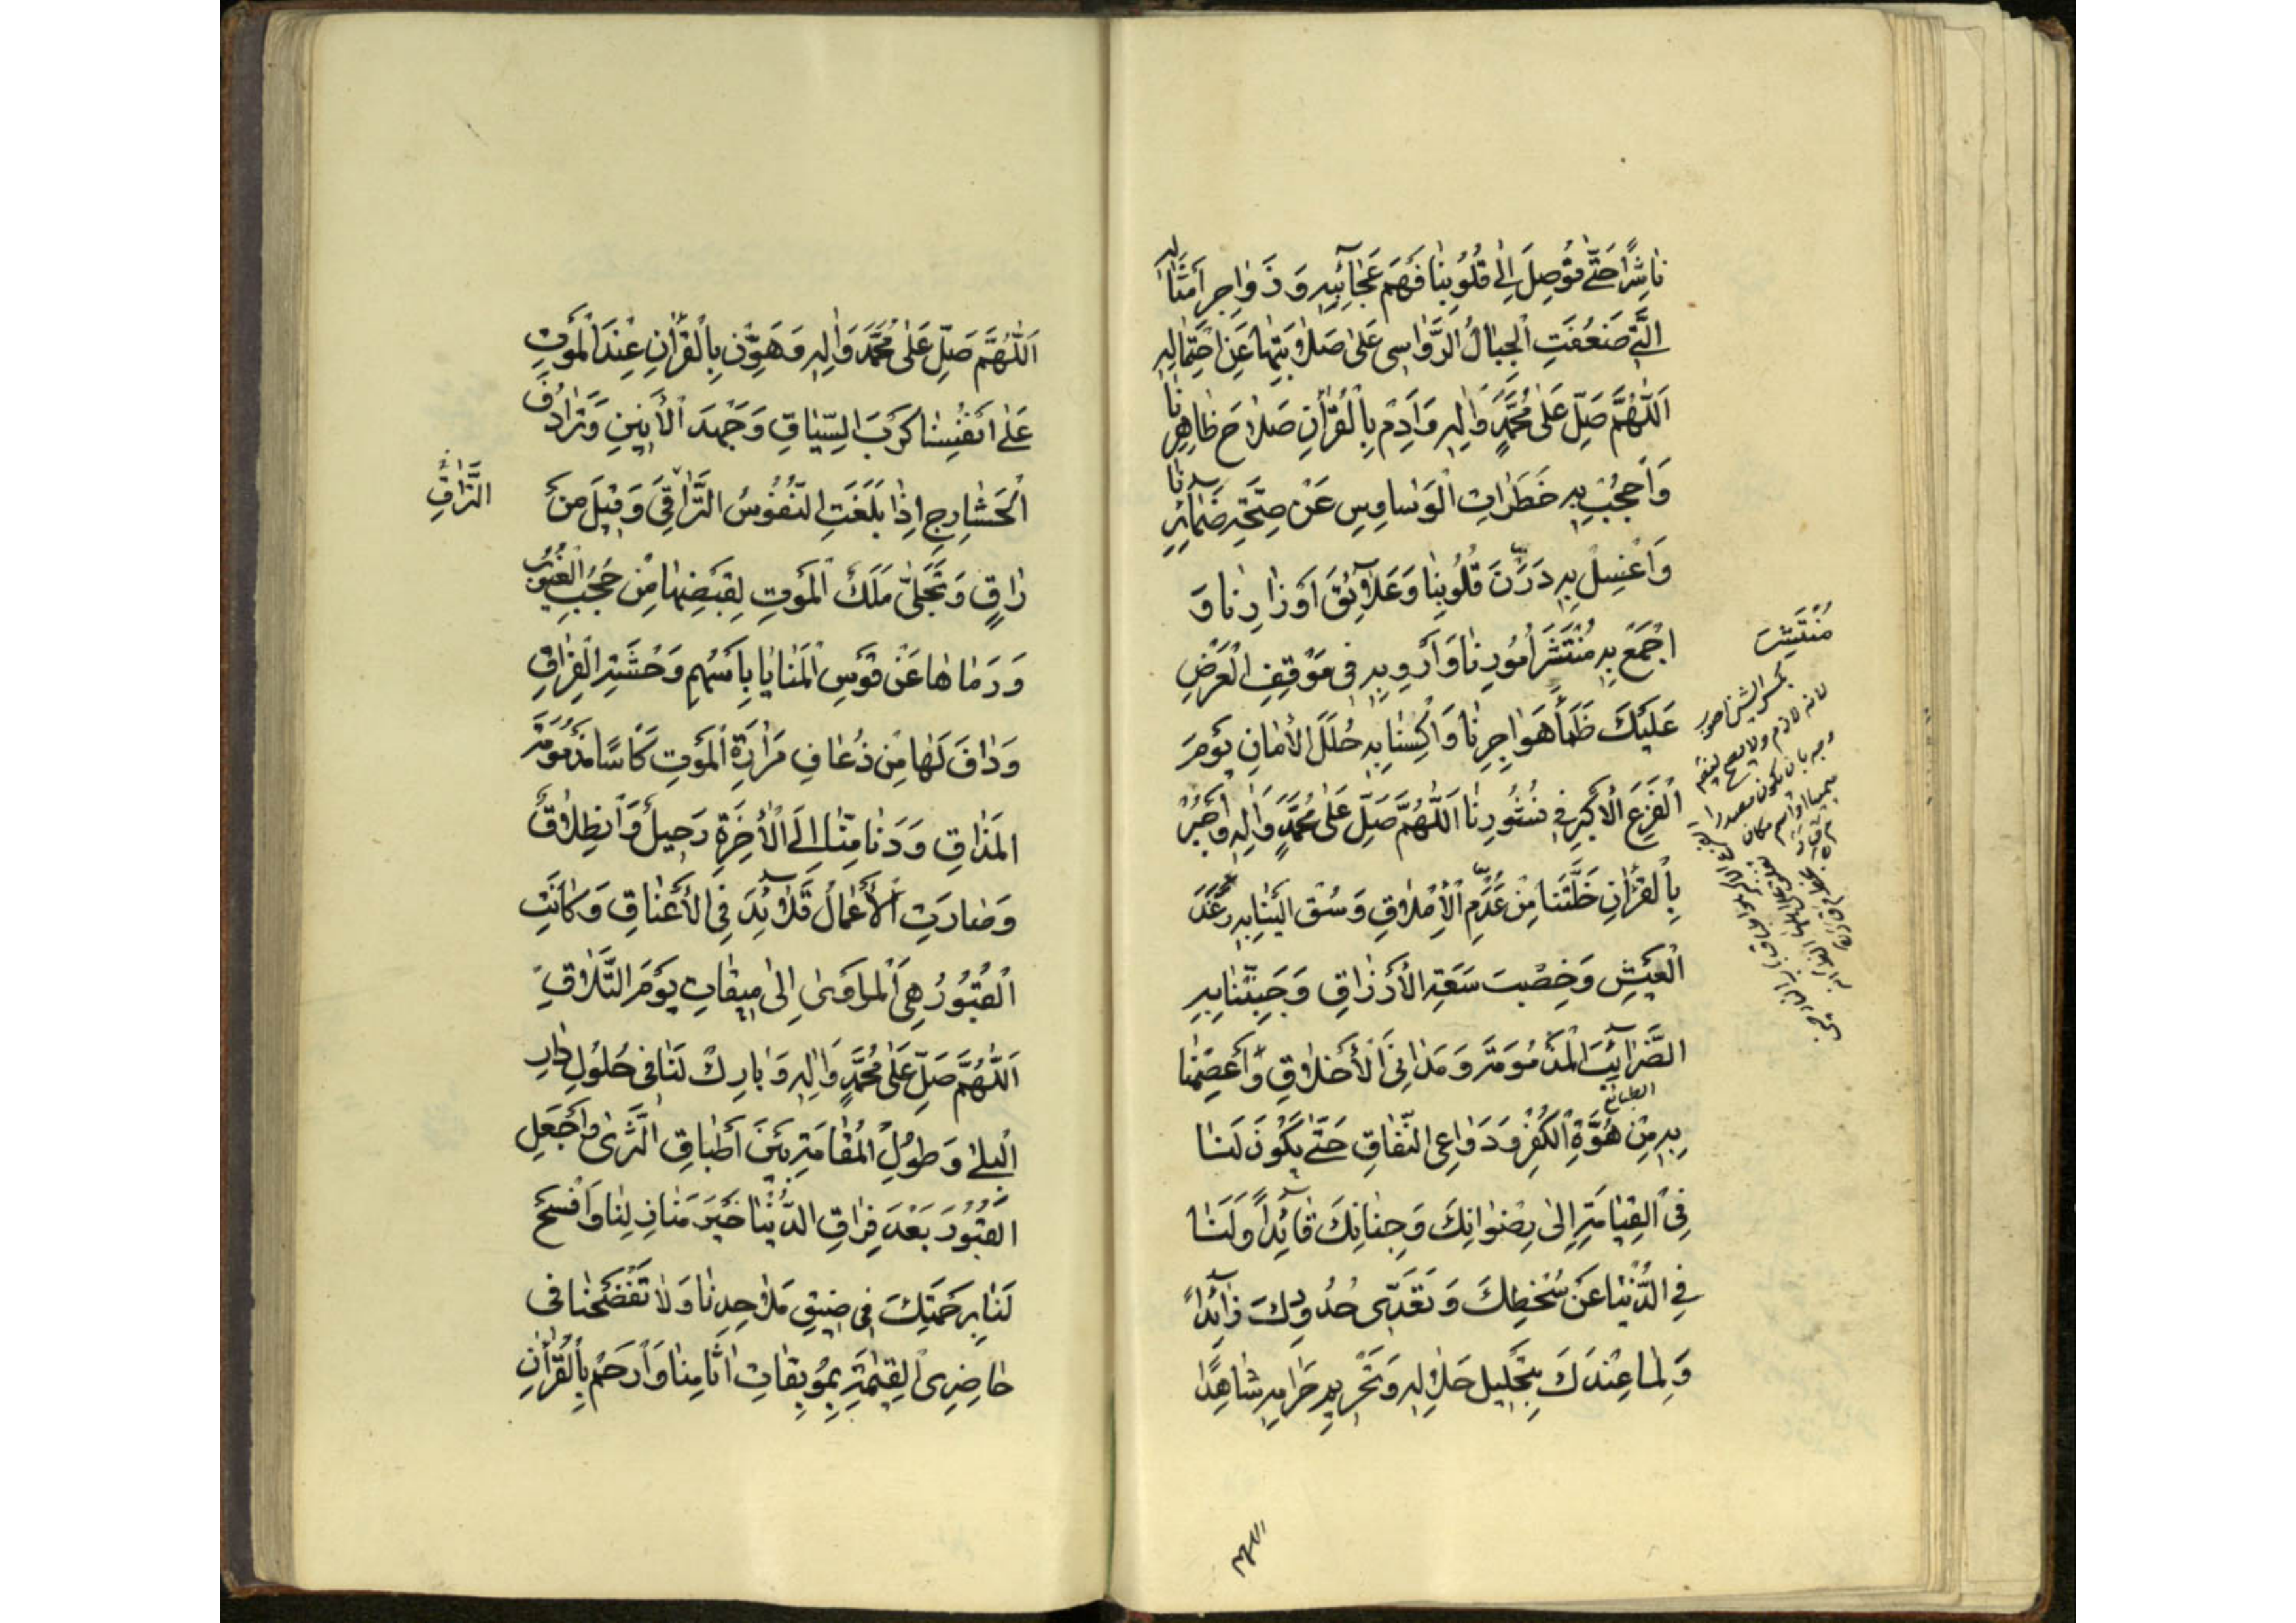 نَاشِرًا حَتّٰى تُوصِلَ اِلٰى قُلُوبِنَا فَهْمَ عَجَآئِبِهِ وَ زَوَاجِرَ اَمْثَالِهِ
الَّتِى ضَعُفَتِ الْجِبَالُ الرَّوَاسِى عَلٰى صَلَابَتِهَا عَنِ احْتِمَالِهِ
اَللّٰهُمَّ صَلِّ عَلٰى مُحَمَّدٍ وَاٰلِهِ وَاَدِمْ بِالْقُرْاٰنِ صَلَاحَ ظَاهِرِنَا
وَاحْجُبْ بِهِ خَطَرَاتِ الْوَسَاوِسِ عَنْ صِحَّةِ ضَمَآئِرِنَا
وَاغْسِلْ بِهِ دَرَنَ قُلُوبِنَا وَعَلَآئِقَ اَوْزَارِنَا وَ
اجْمَعْ بِهِ مُنْتَشَرَ اُمُورِنَا وَاَرْوِ بِهِ فِى مَوْقِفِ الْعَرْضِ
عَلَيْكَ ظَمَأَ هَوَاجِرِنَا وَاكْسُنَا بِهِ حُلَلَ الْاَمَانِ يَوْمَ
الْفَزَعِ الْاَكْبَرِ فِى نُشُورِنَا اَللّٰهُمَّ صَلِّ عَلٰى مُحَمَّدٍ وَاٰلِهِ وَاجْبُرْ
بِالْقُرْاٰنِ خَلَّتَنَا مِنْ عَدَمِ الْاِمْلَاقِ وَسُقْ اِلَيْنَا بِهِ رَغَدَ
الْعَيْشِ وَخِصْبَ سَعَةِ الْاَرْزَاقِ وَجَنِّبْنَا بِهِ
الضَّرَآئِبَ الْمَذْمُومَةَ وَمَدَانِىَ الْاَخْلَاقِ وَاعْصِمْنَا
الطبائع
بِهِ مِنْ هُوَّةِ الْكُفْرِ وَدَوَاعِى النِّفَاقِ حَتّٰى يَكُونَ لَنَا
فِى الْقِيَامَةِ اِلٰى رِضْوَانِكَ وَجِنَانِكَ قَآئِدًا وَلَنَا
فِى الدُّنْيَا عَنْ سُخْطِكَ وَتَعَدِّى حُدُودِكَ ذَآئِدًا
وَلِمَا عِنْدَكَ بِتَحْلِيلِ حَلَالِهِ وَتَحْرِيمِ حَرَامِهِ شَاهِدًا
مُنْتَشِرَ
بكسر الشين اصوب
لانه لازم ولا يصح
بان يكون مصدرا
ميميا او اسم مكان
اللهم
اَللّٰهُمَّ صَلِّ عَلٰى مُحَمَّدٍ وَاٰلِهِ وَهَوِّنْ بِالْقُرْاٰنِ عِنْدَ الْمَوْتِ
عَلٰى اَنْفُسِنَا كَرْبَ السِّيَاقِ وَجَهْدَ الْاَنِينِ وَتَرَادُفَ
الْحَشَارِجِ اِذَا بَلَغَتِ النُّفُوسُ التَّرَاقِىَ وَقِيلَ مَنْ
التَّرَاقِ
رَاقٍ وَتَجَلّٰى مَلَكُ الْمَوْتِ لِقَبْضِهَا مِنْ حُجُبِ الْغُيُوبِ
وَرَمَاهَا عَنْ قَوْسِ الْمَنَايَا بِاَسْهُمِ وَحْشَةِ الْفِرَاقِ
وَدَافَ لَهَا مِنْ ذُعَافِ مَرَارَةِ الْمَوْتِ كَاْسًا مَسْمُومَةَ
الْمَذَاقِ وَدَنَا مِنَّا اِلَى الْاٰخِرَةِ رَحِيلٌ وَانْطِلَاقٌ
وَصَارَتِ الْاَعْمَالُ قَلَآئِدَ فِى الْاَعْنَاقِ وَكَانَتِ
الْقُبُورُ هِىَ الْمَاْوٰى اِلٰى مِيقَاتِ يَوْمِ التَّلَاقِ
اَللّٰهُمَّ صَلِّ عَلٰى مُحَمَّدٍ وَاٰلِهِ وَبَارِكْ لَنَا فِى حُلُولِ دَارِ
الْبِلٰى وَطُولِ الْمُقَامَةِ بَيْنَ اَطْبَاقِ الثَّرٰى وَاجْعَلِ
الْقُبُورَ بَعْدَ فِرَاقِ الدُّنْيَا خَيْرَ مَنَازِلِنَا وَافْسَحْ
لَنَا بِرَحْمَتِكَ فِى ضِيقِ مَلَاحِدِنَا وَلَا تَفْضَحْنَا فِى
حَاضِرِى الْقِيٰمَةِ بِمُوبِقَاتِ اٰثَامِنَا وَارْحَمْ بِالْقُرْاٰنِ